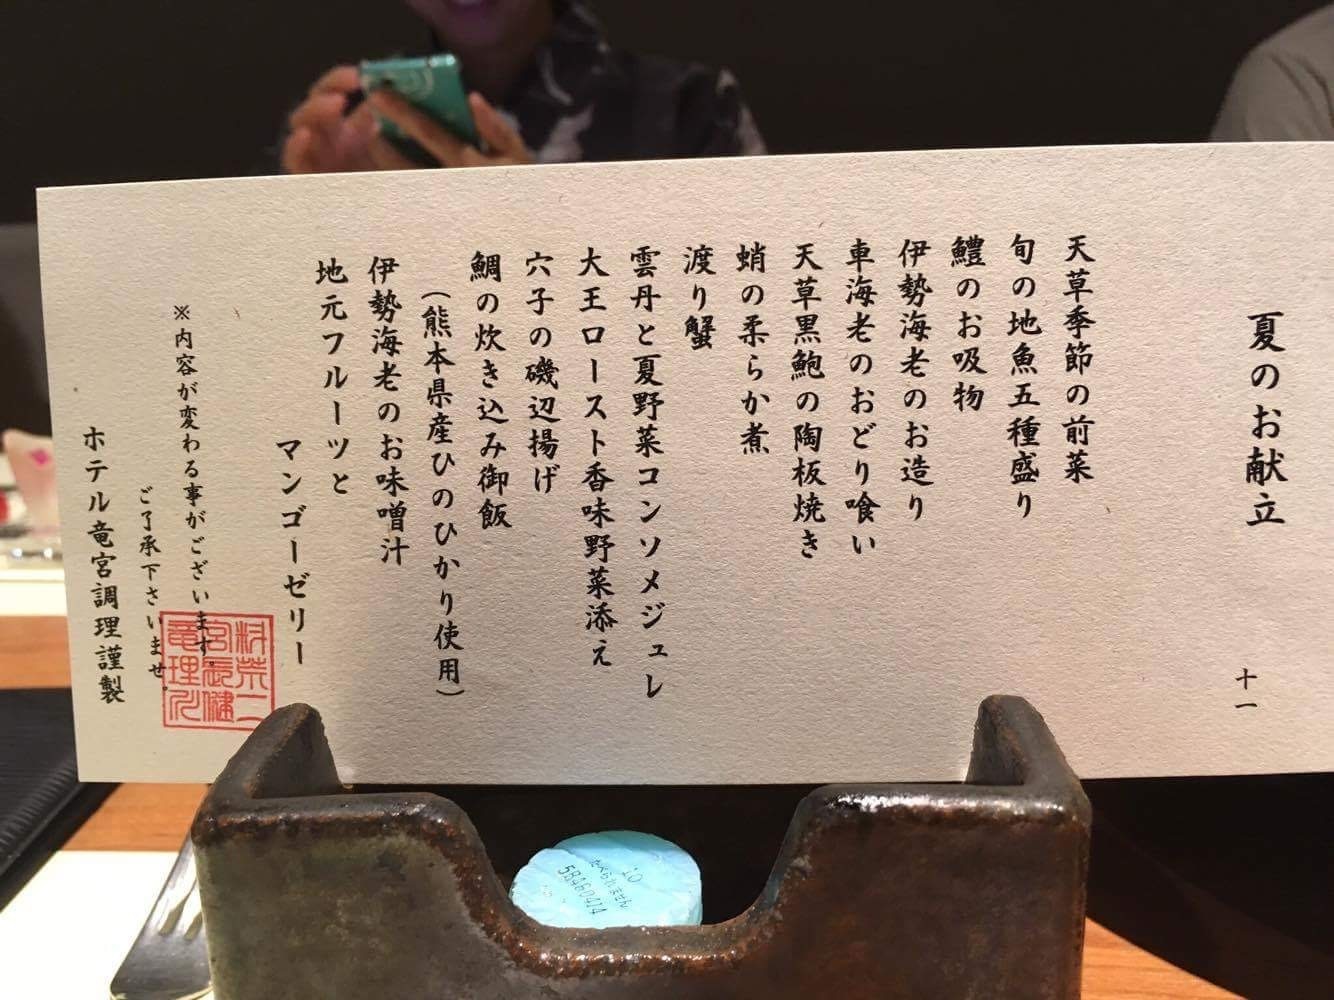 夏のお献立
十一
天草季節の前菜
旬の地魚五種盛り
鱧のお吸物
伊勢海老のお造り
車海老のおどり喰い
天草黒鮑の陶板焼き
蛸の柔らか煮
渡り蟹
雲丹と夏野菜コンソメジュレ
大王ロースト香味野菜添え
穴子の磯辺揚げ
鯛の炊き込み御飯
(熊本県産ひのひかり使用)
伊勢海老のお味噌汁
地元フルーツと
マンゴーゼリー
※内容が変わる事がございます。
ご了承下さいませ。
ホテル竜宮調理謹製
10
たべられません
58460414